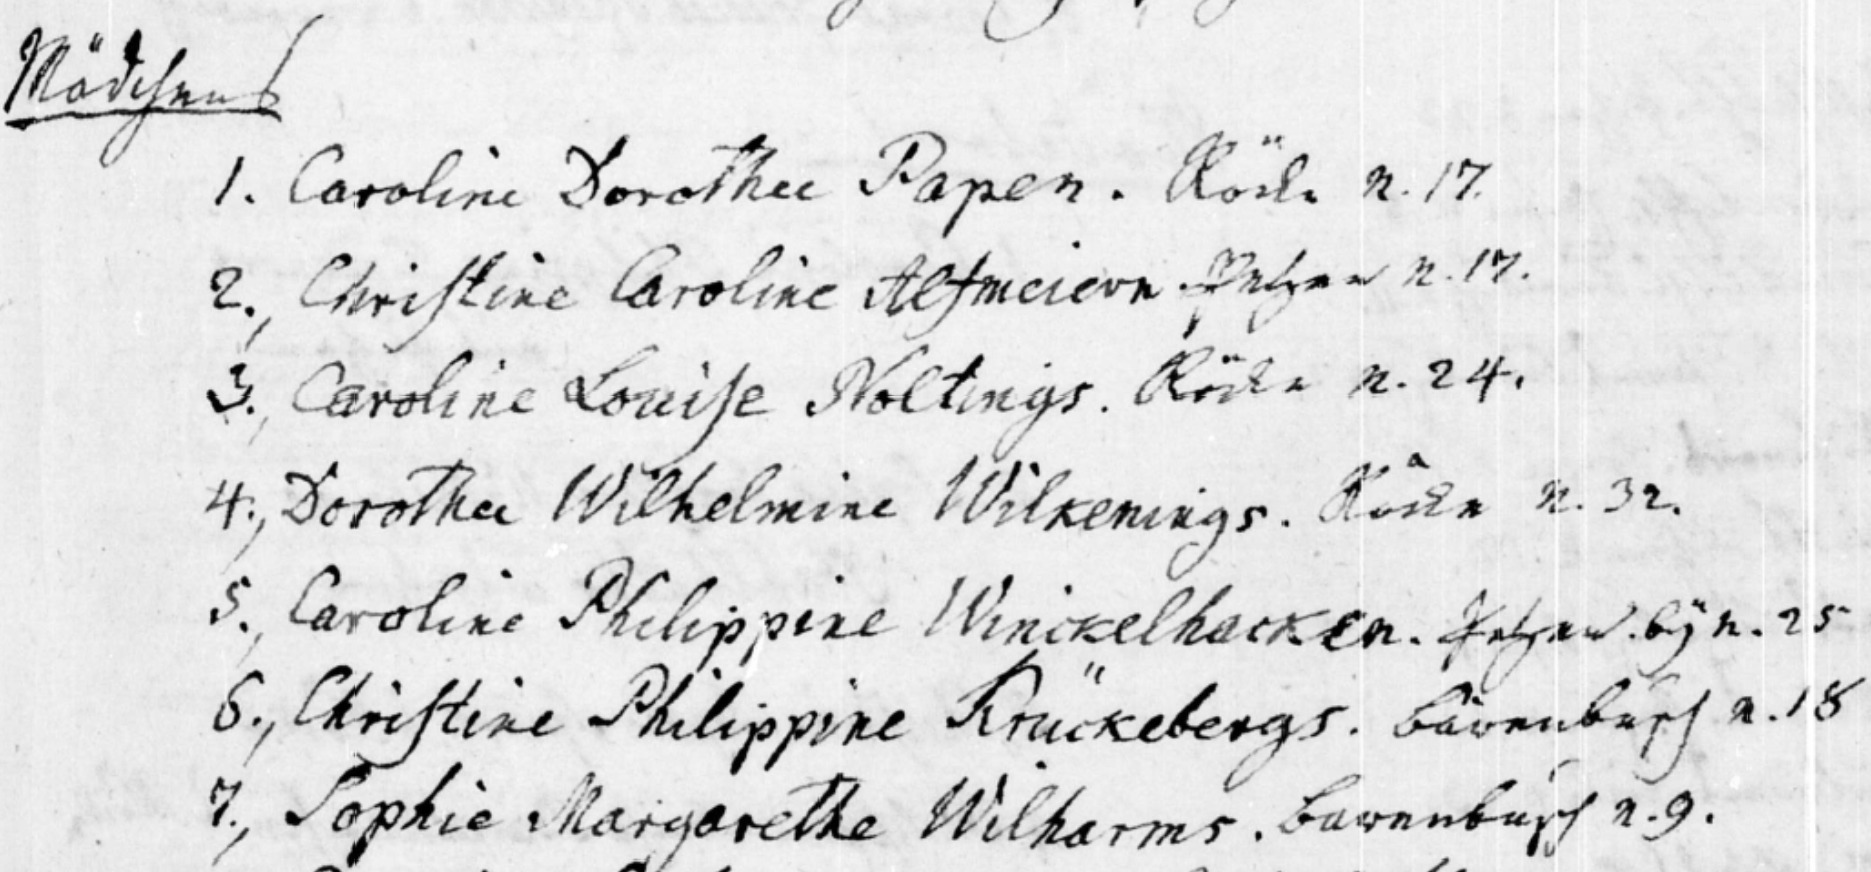 Mädchens
1. Caroline Dorothee Papen. Röcke n. 17.
2., Christine Caroline Altmeiern. Petzen n. 17.
3., Caroline Louise Noltings. Röcke n. 24.
4., Dorothee Wilhelmine Wilkenings. Röcke n. 32.
5., Caroline Philippine Winckelhacken. Petzen. bÿ n. 25
6., Christine Philippine Krückebergs. Bärenbusch n. 18
7., Sophie Margarethe Wilharms. Barenbusch n. 9.